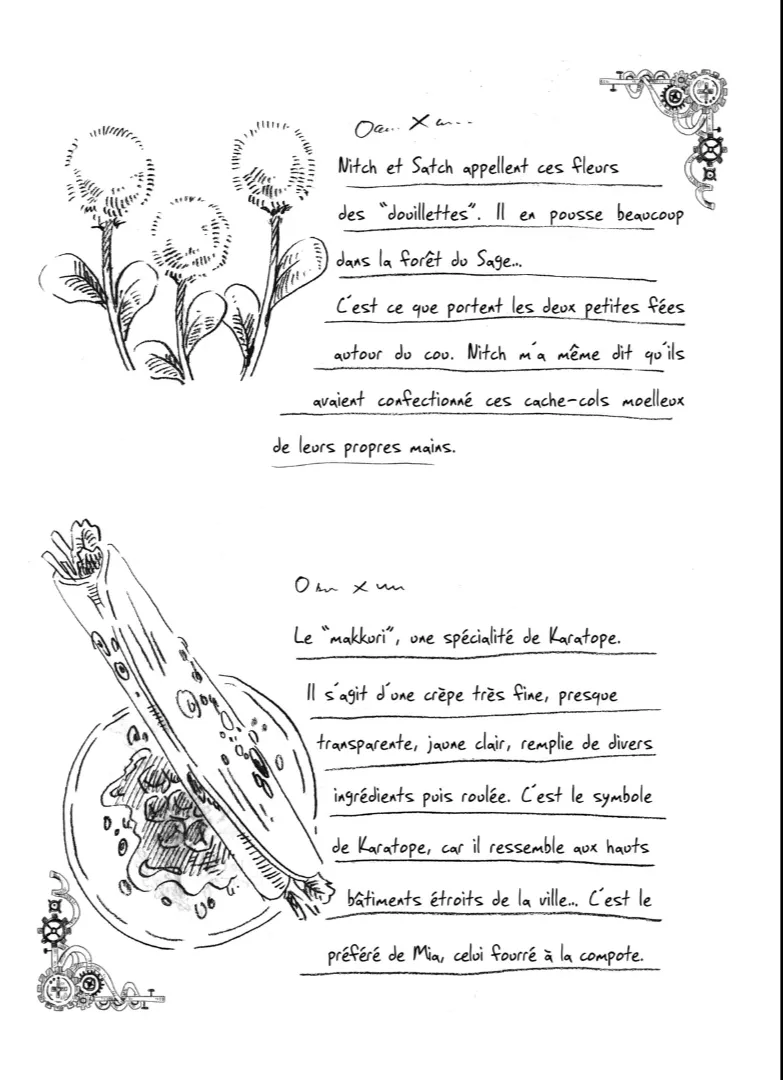 Nitch et Satch appellent ces fleurs
des "douillettes". Il en pousse beaucoup
dans la forêt du Sage...
C'est ce que portent les deux petites fées
autour du cou. Nitch m'a même dit qu'ils
avaient confectionné ces cache-cols moelleux
de leurs propres mains.
Le "makkuri", une spécialité de Karatope.
Il s'agit d'une crèpe très fine, presque
transparente, jaune clair, remplie de divers
ingrédients puis roulée. C'est le symbole
de Karatope, car il ressemble aux hauts
bâtiments étroits de la ville... C'est le
préféré de Mia, celui fourré à la compote.